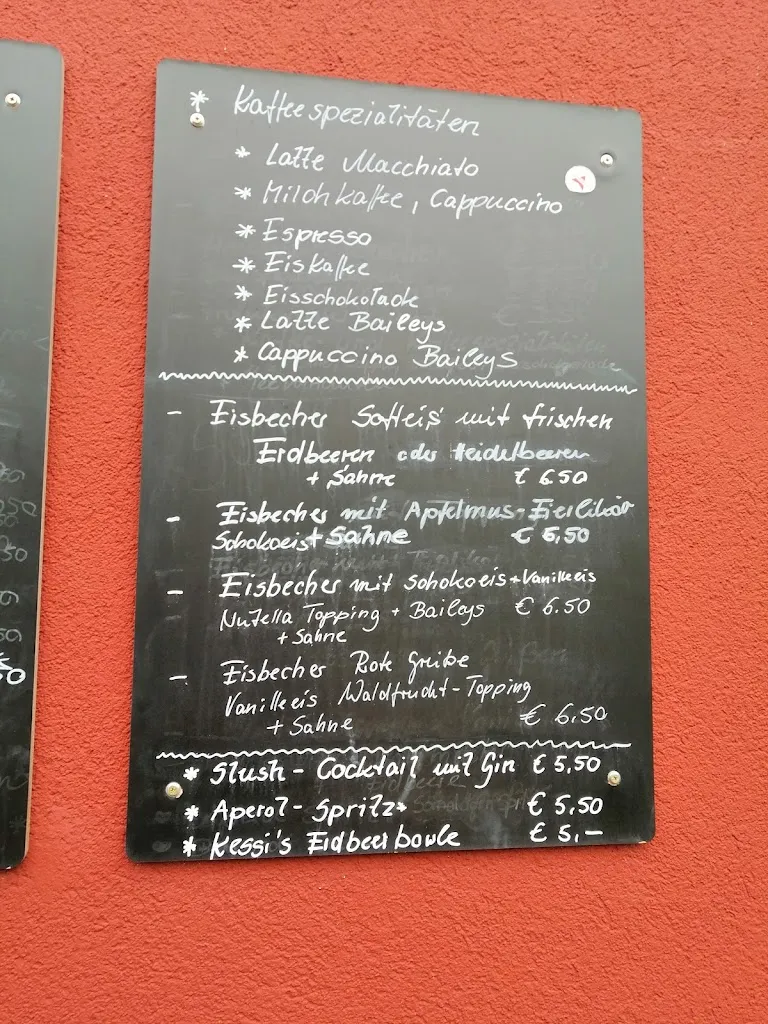 * Kaffeespezialitäten
* Latte Macchiato
* Milchkaffee, Cappuccino
* Espresso
* Eiskaffee
* Eisschokolade
* Latte Baileys
* Cappuccino Baileys
- Eisbecher Softeis mit frischen
Erdbeeren oder Heidelbeeren
+ Sahne € 6.50
- Eisbecher mit Apfelmus-Eierlikör
Schokoeis + Sahne € 6,50
- Eisbecher mit Schokoeis + Vanilleeis
Nutella Topping + Baileys € 6.50
+ Sahne
- Eisbecher Rote Grütze
Vanilleeis Waldfrucht-Topping
+ Sahne € 6,50
* Slush - Cocktail mit Gin € 5,50
* Aperol - Spritz* € 5,50
* Kessi's Erdbeerbowle € 5,-